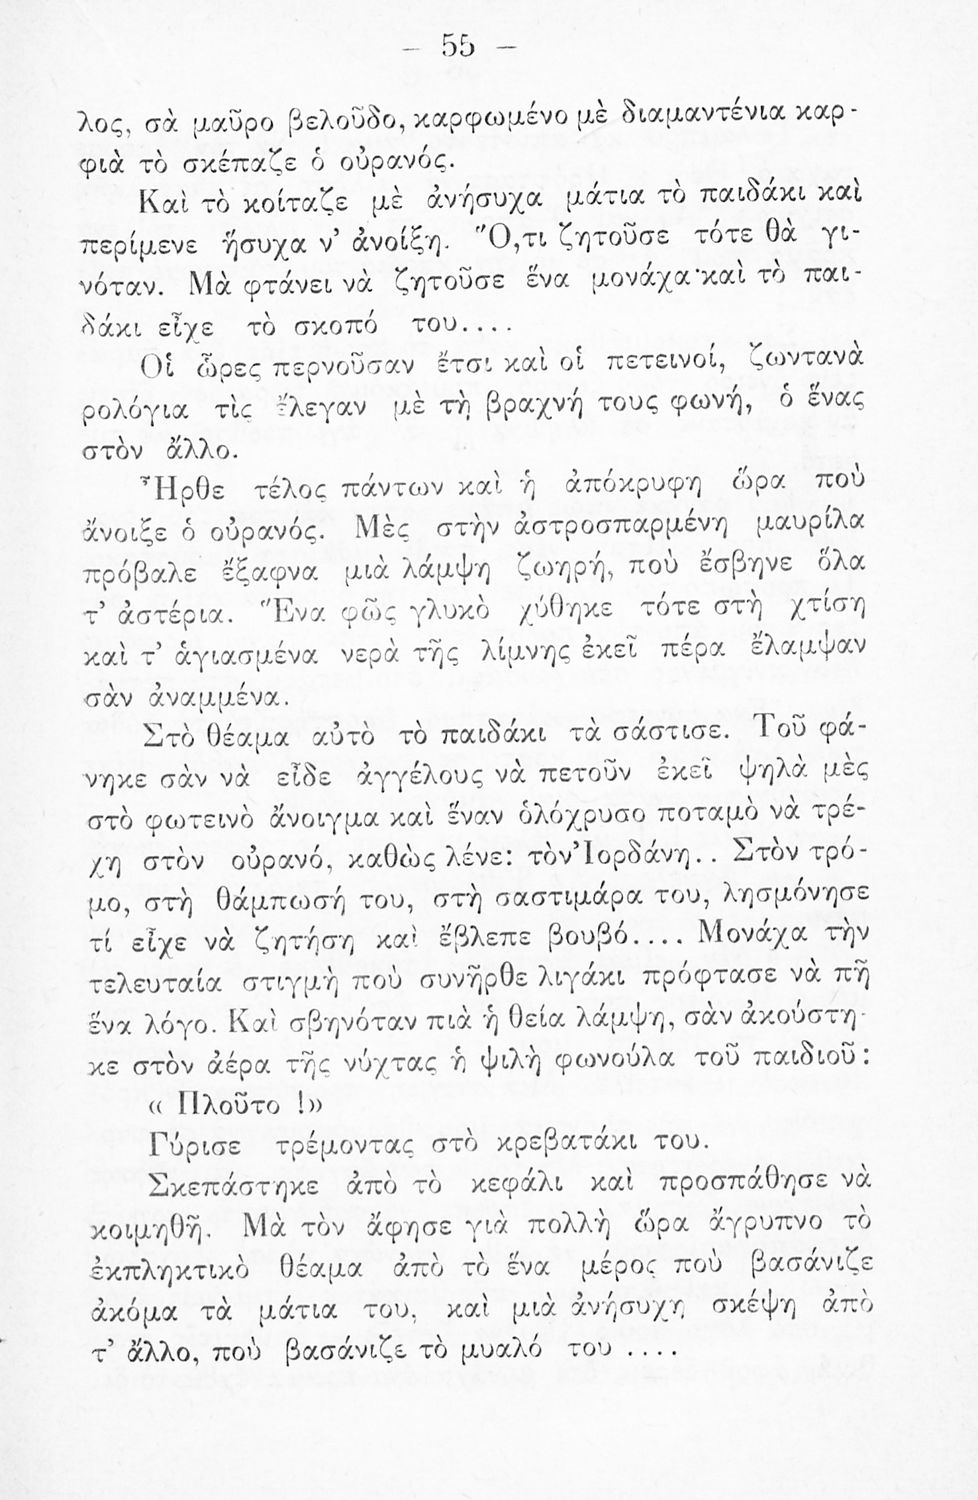 – 55 –
λος, σὰ μαῦρο βελοῦδο, καρφωμένο μὲ διαμαντένια καρ-
φιὰ τὸ σκέπαζε ὁ οὐρανός.
Καὶ τὸ κοίταζε μὲ ἀνήσυχα μάτια τὸ παιδάκι καὶ
περίμενε ἥσυχα ν’ ἀνοίξῃ. Ὅ,τι ζητοῦσε τότε θὰ γι-
νόταν. Μὰ φτάνει νὰ ζητοῦσε ἕνα μονάχα·καὶ τὸ παι-
δάκι εἶχε τὸ σκοπό του....
Οἱ ὧρες περνοῦσαν ἔτσι καὶ οἱ πετεινοί, ζωντανὰ
ρολόγια τὶς ἔλεγαν μὲ τὴ βραχνή τους φωνή, ὁ ἕνας
στὸν ἄλλο.
Ἦρθε τέλος πάντων καὶ ἡ ἀπόκρυφη ὥρα ποὺ
ἄνοιξε ὁ οὐρανός. Μὲς στὴν ἀστροσπαρμένη μαυρίλα
πρόβαλε ἔξαφνα μιὰ λάμψη ζωηρή, ποὺ ἔσβηνε ὅλα
τ’ ἀστέρια. Ἕνα φῶς γλυκὸ χύθηκε τότε στὴ χτίση
καὶ τ’ ἁγιασμένα νερὰ τῆς λίμνης ἐκεῖ πέρα ἔλαμψαν
σὰν ἀναμμένα.
Στὸ θέαμα αὐτὸ τὸ παιδάκι τὰ σάστισε. Τοῦ φά-
νηκε σὰν νὰ εἶδε ἀγγέλους νὰ πετοῦν ἐκεῖ ψηλὰ μὲς
στὸ φωτεινὸ ἄνοιγμα καὶ ἕναν ὁλόχρυσο ποταμὸ νὰ τρέ-
χῃ στὸν οὐρανό, καθὼς λένε: τὸν Ἰορδάνη.. Στὸν τρό-
μο, στὴ θάμπωσή του, στὴ σαστιμάρα του, λησμόνησε
τί εἶχε νὰ ζητήσῃ καὶ ἔβλεπε βουβό.... Μονάχα τὴν
τελευταία στιγμὴ ποὺ συνῆρθε λιγάκι πρόφτασε νὰ πῇ
ἕνα λόγο. Καὶ σβηνόταν πιὰ ἡ θεία λάμψη, σὰν ἀκούστη-
κε στὸν ἀέρα τῆς νύχτας ἡ ψιλὴ φωνούλα τοῦ παιδιοῦ:
« Πλοῦτο !»
Γύρισε τρέμοντας στὸ κρεβατάκι του.
Σκεπάστηκε ἀπὸ τὸ κεφάλι καὶ προσπάθησε νὰ
κοιμηθῇ. Μὰ τὸν ἄφησε γιὰ πολλὴ ὥρα ἄγρυπνο τὸ
ἐκπληκτικὸ θέαμα ἀπὸ τὸ ἕνα μέρος ποὺ βασάνιζε
ἀκόμα τὰ μάτια του, καὶ μιὰ ἀνήσυχη σκέψη ἀπὸ
τ’ ἄλλο, ποὺ βασάνιζε τὸ μυαλό του ....